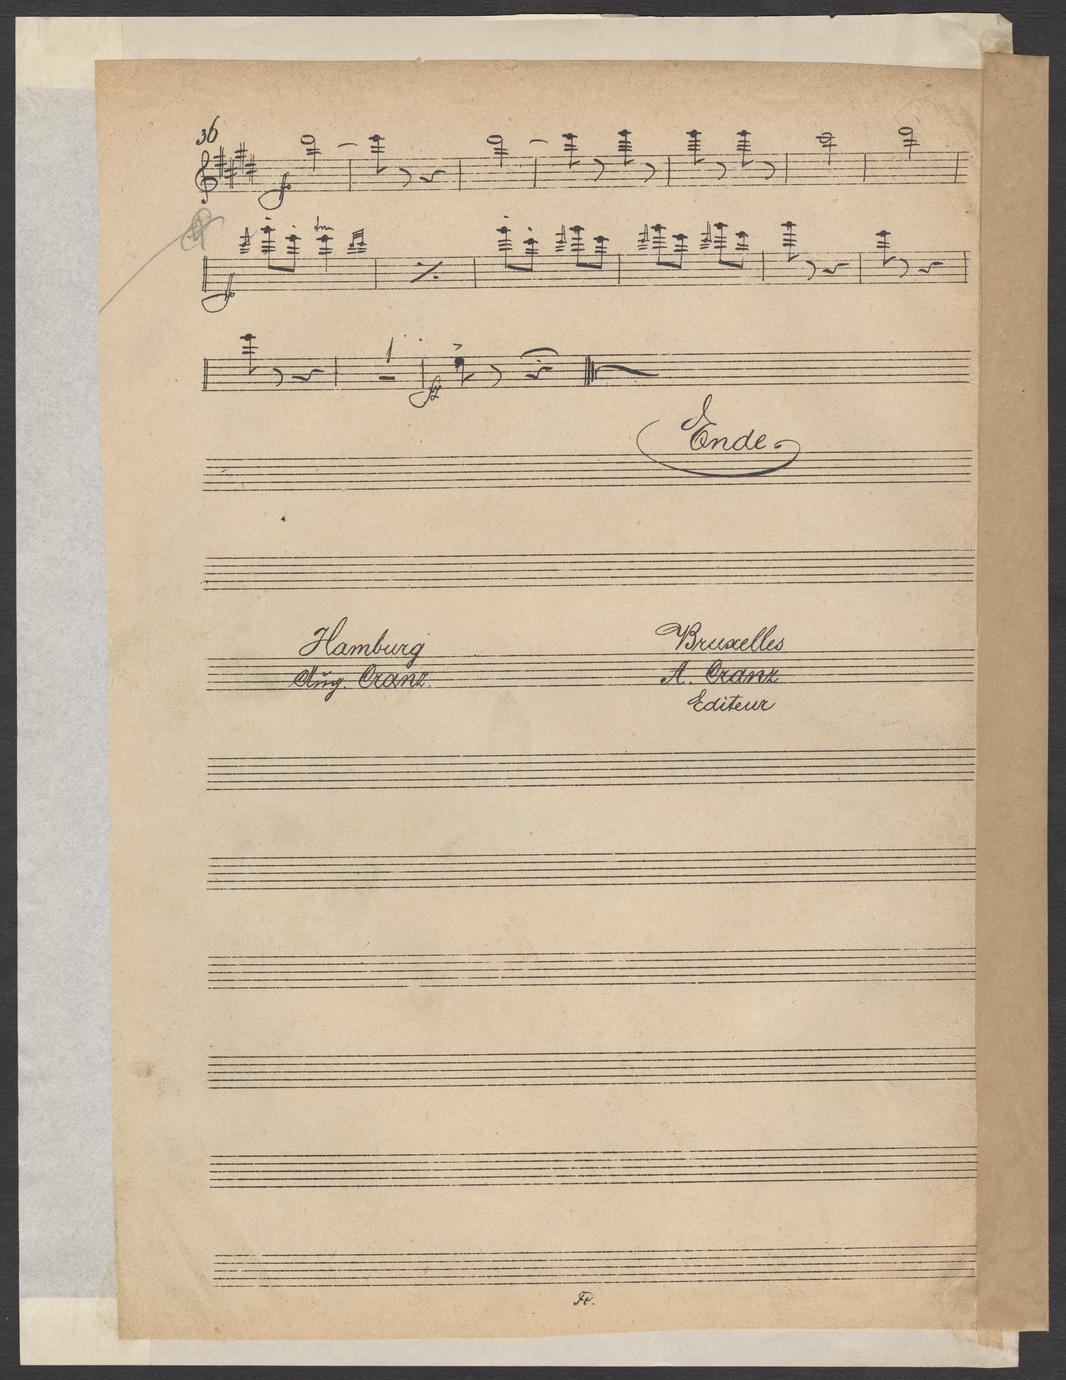 36
tr
1
Ende.
Hamburg
Aug. Cranz.
Bruxelles
A. Cranz
Editeur